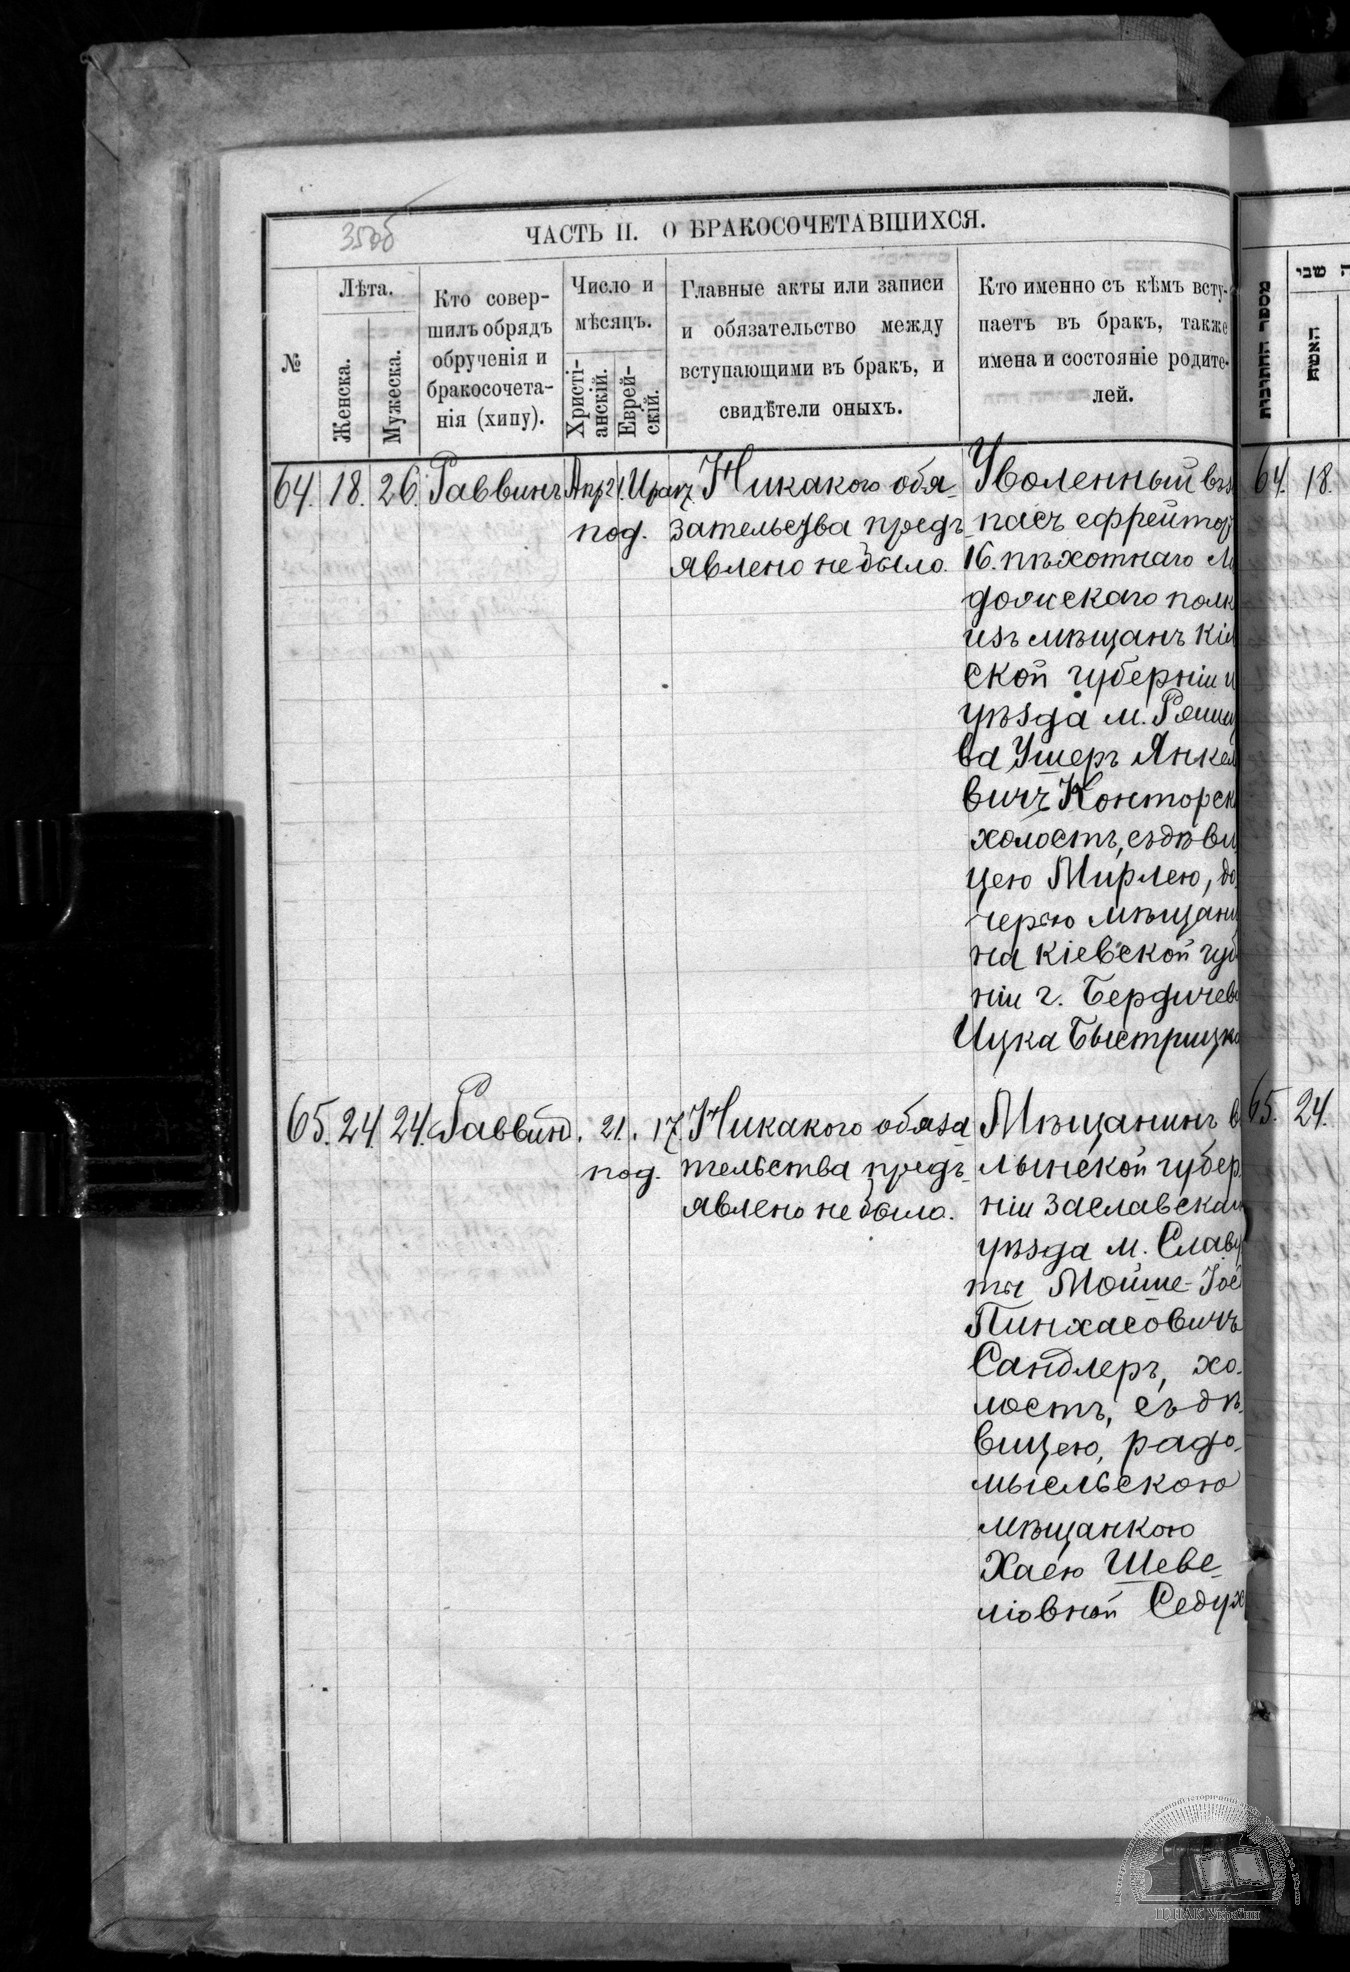 350б
ЧАСТЬ II. О БРАКОСОЧЕТАВШИХСЯ.
№
Лѣта.
Женска.
Мужеска.
Кто совер-
шилъ обрядъ
обрученія и
бракосочета-
нія (хипу).
Число и
мѣсяцъ.
Христі-
анскій.
Еврей-
скій.
Главные акты или записи
и обязательство между
вступающими въ бракъ, и
свидѣтели оныхъ.
Кто именно съ кѣмъ всту-
паетъ въ бракъ, также
имена и состояніе родите-
лей.
64. 18. 26. Раввинъ Апр 21.
под.
Никакого обя-
зательства предъ-
явлено не было.
Уволенный въ з
пасъ ефрейтор
16. пѣхотнаго Ла
дожскаго полк
изъ мѣщанъ Кіе
ской губерніи и
уѣзда м.
ва Ушеръ Янкел
вичъ Конторск
холостъ, съ дѣви
цею Мирлею, до
черью мѣщани
на Кіевской губ
ніи г. Бердичев
Ицка Быстрицк
65. 24. 24. Раввин. 21. 17.
под.
Никакого обяза
тельства предъ-
явлено не было.
Мѣщанинъ в
лынской губер
ніи Заславска
уѣзда м. Славу
ты Мойше-Іос
Пинхасовичъ
Сандлеръ, хо-
лостъ, съ дѣ-
вицею, радо-
мысльскою
мѣщанкою
Хаею Шеве-
ліовной Седух
מספר החתונות
שבי
האשה
64. 18.
65. 24.
ЦДІАК України